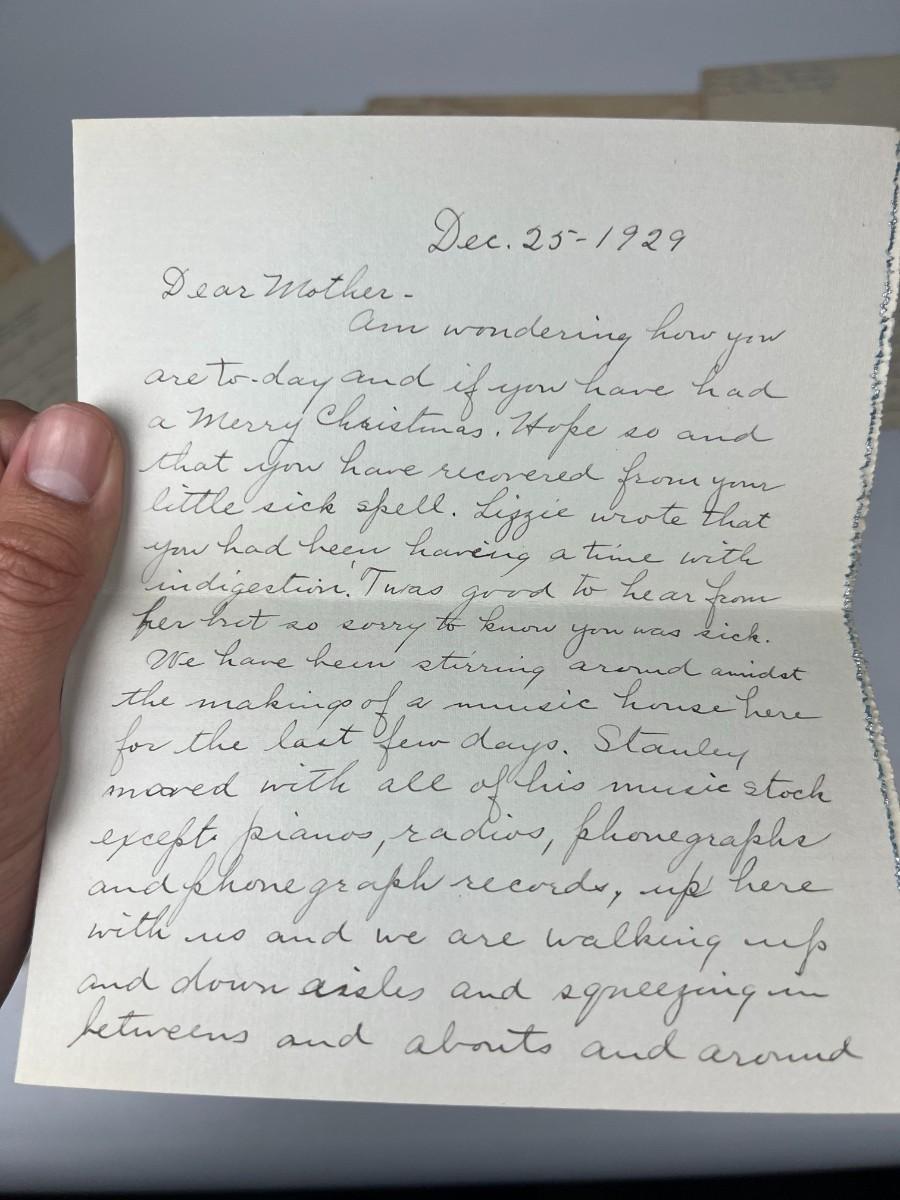 Dec. 25-1929
Dear Mother-
Am wondering how you
are to-day and if you have had
a Merry Christmas. Hope so and
that you have recovered from your
little sick spell. Lizzie wrote that
you had been having a time with
indigestion. 'Twas good to hear from
her but so sorry to know you was sick.
We have been stirring around amidst
the makings of a music house here
for the last few days. Stanley
moved with all of his music stock
except pianos, radios, phonegraphs
and phonegraph records, up here
with us and we are walking up
and down aisles and squeezing in
betweens and abouts and around